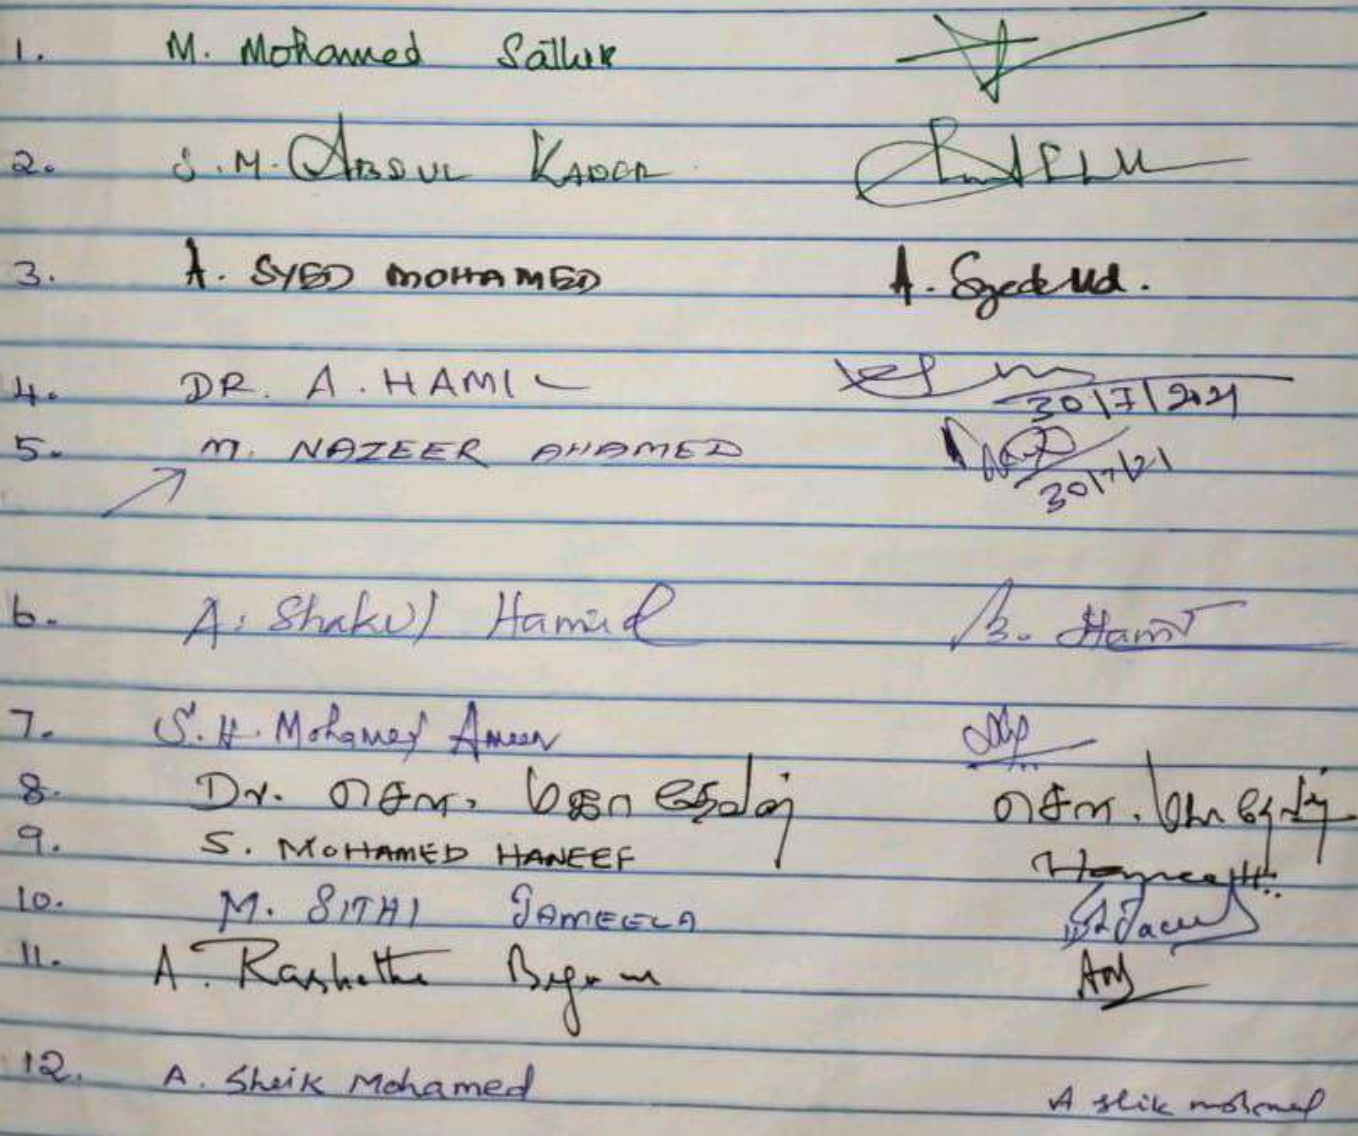 1. M. Mohamed Sathik
2. S. M. ABDUL KADER
3. A. SYED MOHAMED A. Syed Md.
4. DR. A. HAMIL
30/7/2021
5. M. NAZEER AHAMED
30/7/21
6. A. Shakul Hamid
7. S. H. Mohamed Ameen
8. Dr. சொ.
9. S. MOHAMED HANEEF
10. M. SITHI JAMEELA
11. A. Rashetha Begum
12. A. Sheik Mohamed A sheik mohamed